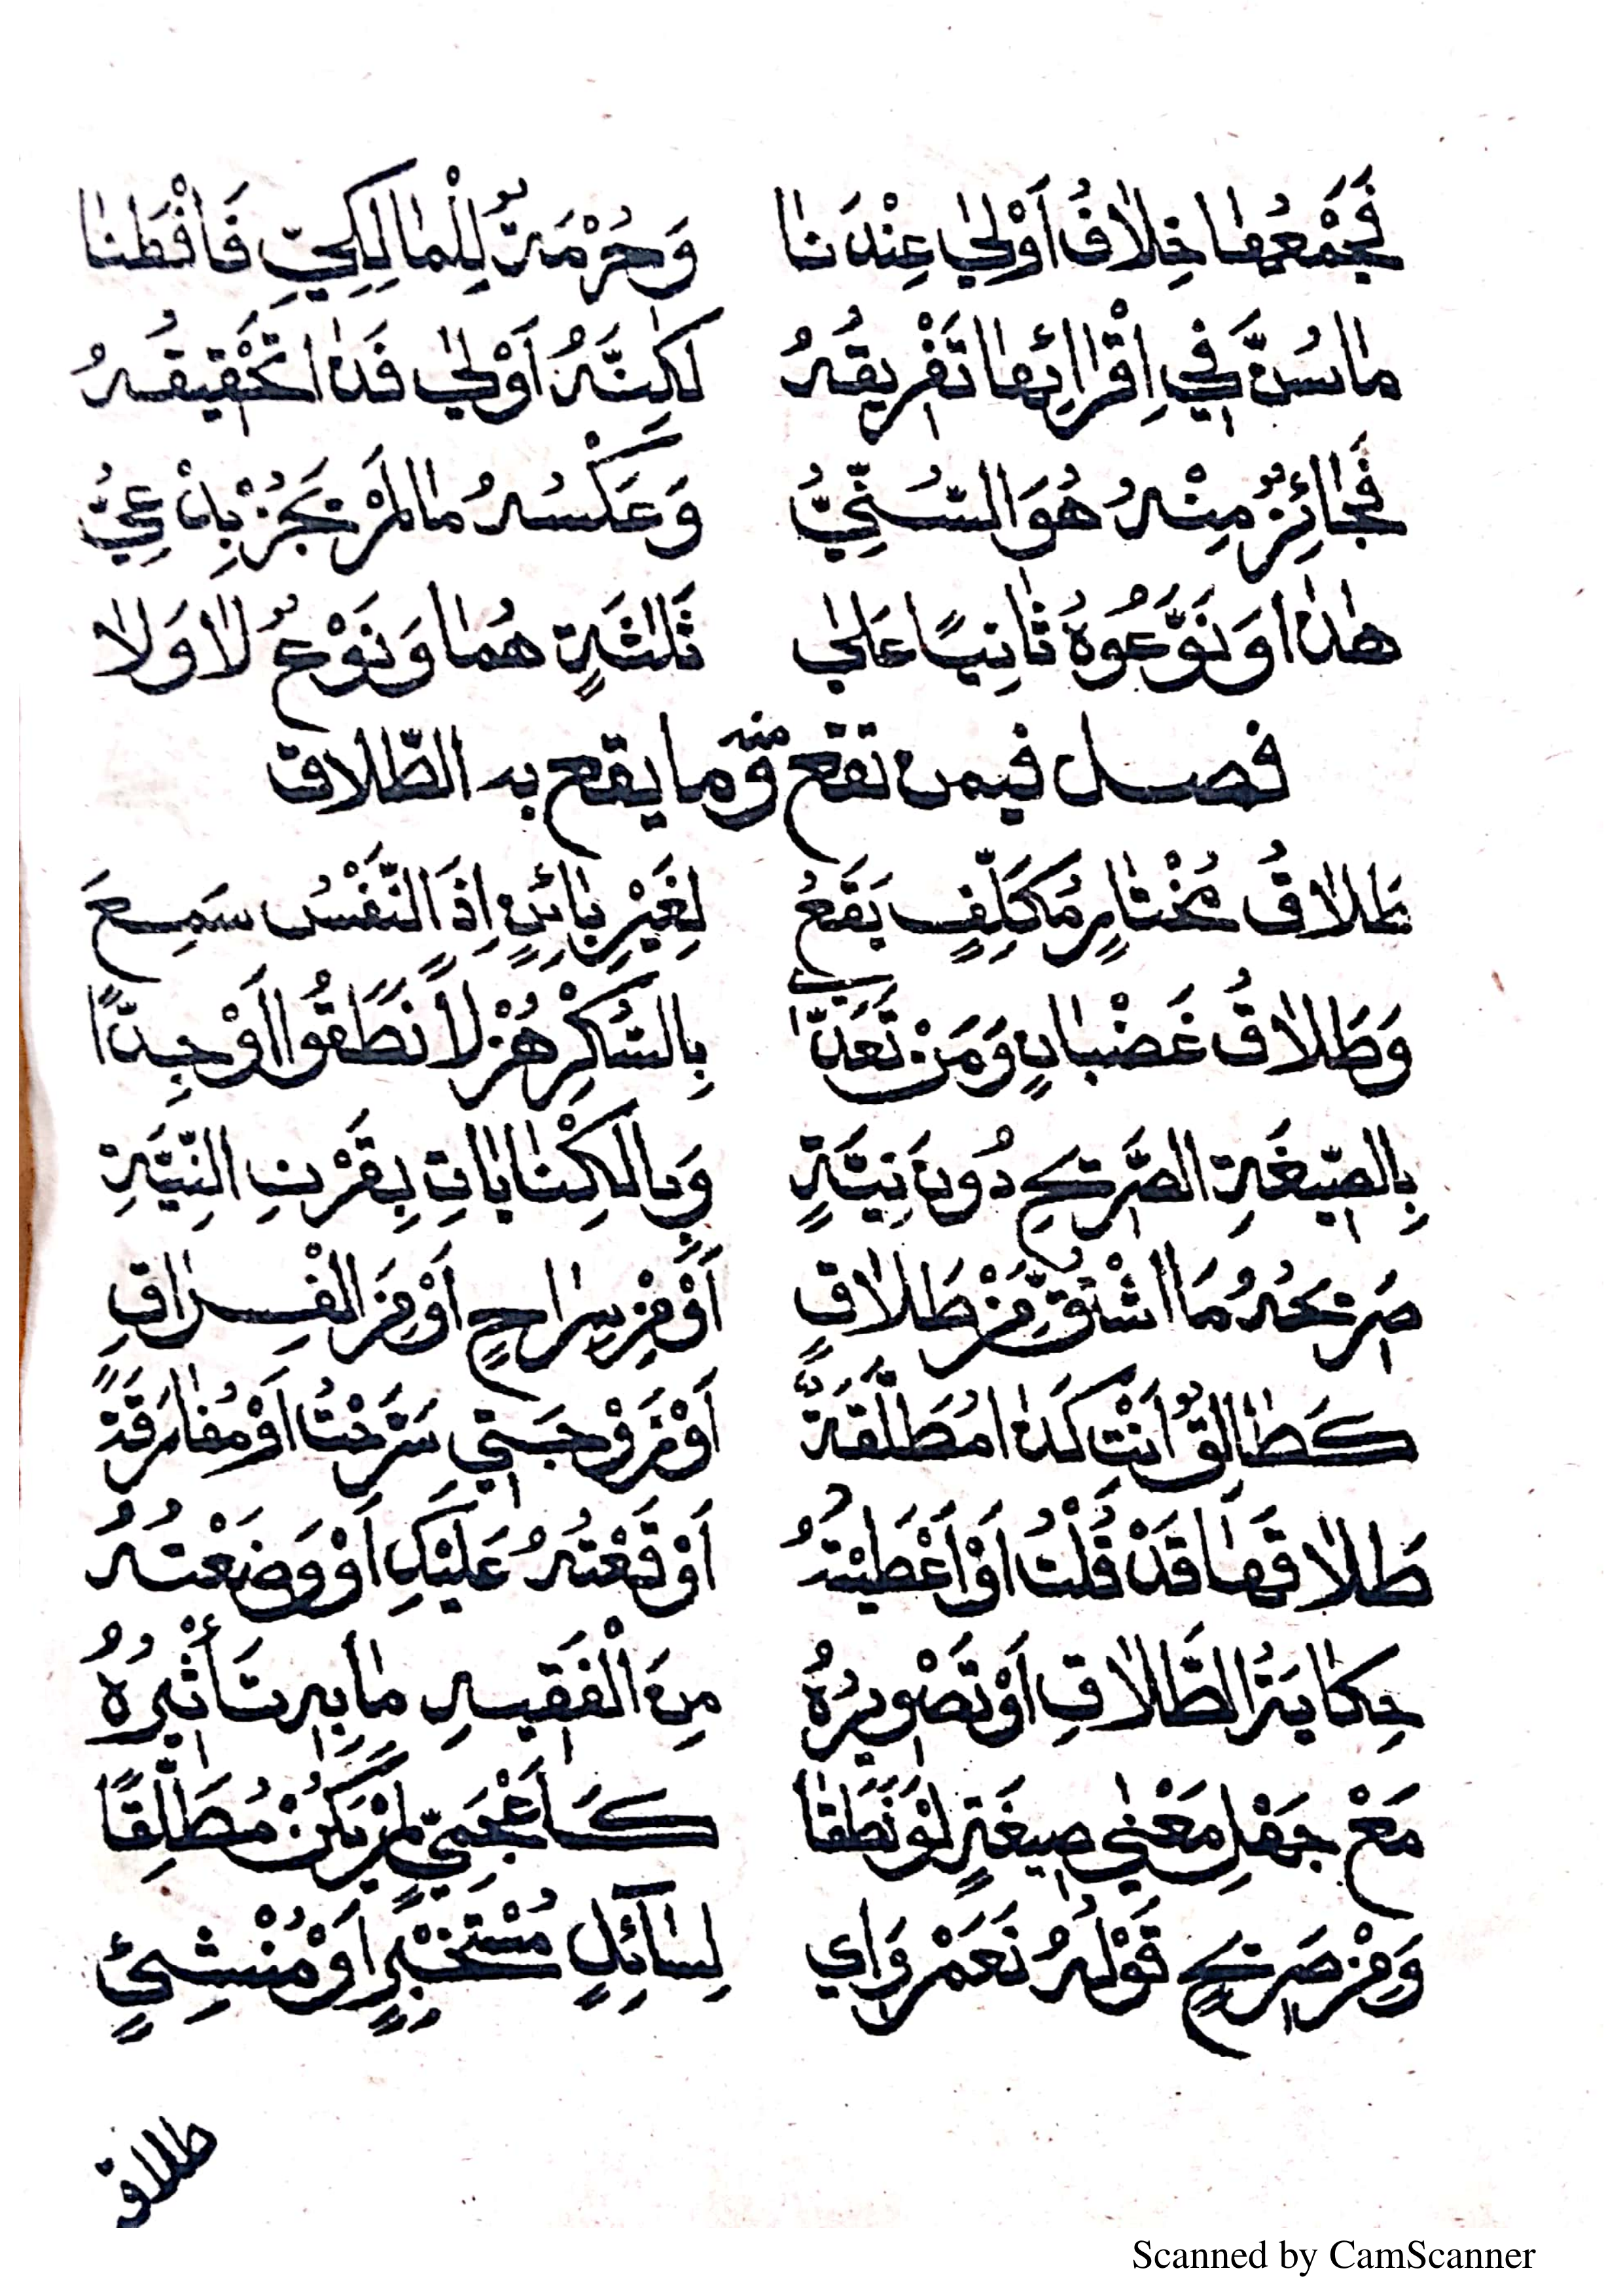 فَجَمْعُهَا خِلَافُ اَوْلٰى عِنْدَنَا وَحُرْمَةٌ لِلْمَالِكِيِّ فَافْطَنَا
مَاسُنَّ فِي اِقْرَائِهَا تَفْرِيقُهُ لٰكِنَّهُ اَوْلٰى فَذَا تَحْقِيقُهُ
فَجَائِزٌ مِنْهُ هُوَ السُّنِّيُّ وَعَكْسُهُ مَا لَمْ يَجُزْ بِدْعِيُّ
هٰذَا وَنَوَّعُوهُ ثَانِيًا عَلٰى ثَلٰثَةٍ هُمَا وَنَوْعٌ لَا وَلَا
فصل فيمن تقع منه وما يقع به الطّلاق
طَلَاقُ مُخْتَارٍ مُكَلَّفٍ يَقَعُ لِغَيْرِ بَائِنٍ اِذَا النَّفْسُ سَمِعَ
وَطَلَاقُ غَضْبَانٍ وَمَنْ تَعَدَّى بِالسُّكْرِ هَزْلًا نَطَقُوا اَوْجِدًّا
بِالصِّيغَةِ الصَّرِيحِ دُونَ نِيَّةٍ وَبِالْكِنَايَاتِ بِقَرْنِ النِّيَّةِ
صَرِيحُهُ مَا اشْتُقَّ مِنْ طَلَاقٍ اَوْ مِنْ سَرَاحٍ اَوْ مِنَ الْفِرَاقِ
كَطَالِقٌ اَنْتِ كَذَا مُطَلَّقَةٌ اَوْ زَوْجَتِي سَرَّحْتُ اَوْ مُفَارَقَةً
طَلَاقَهَا قَدْ قُلْتُ اَوْ اَعْطَيْتُهُ اَوْقَعْتُهُ عَلَيْكِ اَوْ وَضَعْتُهُ
حِكَايَةُ الطَّلَاقِ اَوْ تَصْوِيرُهُ مِنَ الْفَقِيهِ مَا بِهِ تَأْثِيرُهُ
مَعْ جَهْلِ مَعْنٰى صِيغَةٍ لَوْ نَطَقَا كَاَعْجَمِيٍّ لَمْ يَكُنْ مُطَلِّقًا
وَمِنْ صَرِيحٍ قَوْلُهُ نَعَمْ وَاي لِسَائِلٍ مُسْتَخْبِرٍ اَوْ مُنْشِئٍ
طلاق
Scanned by CamScanner